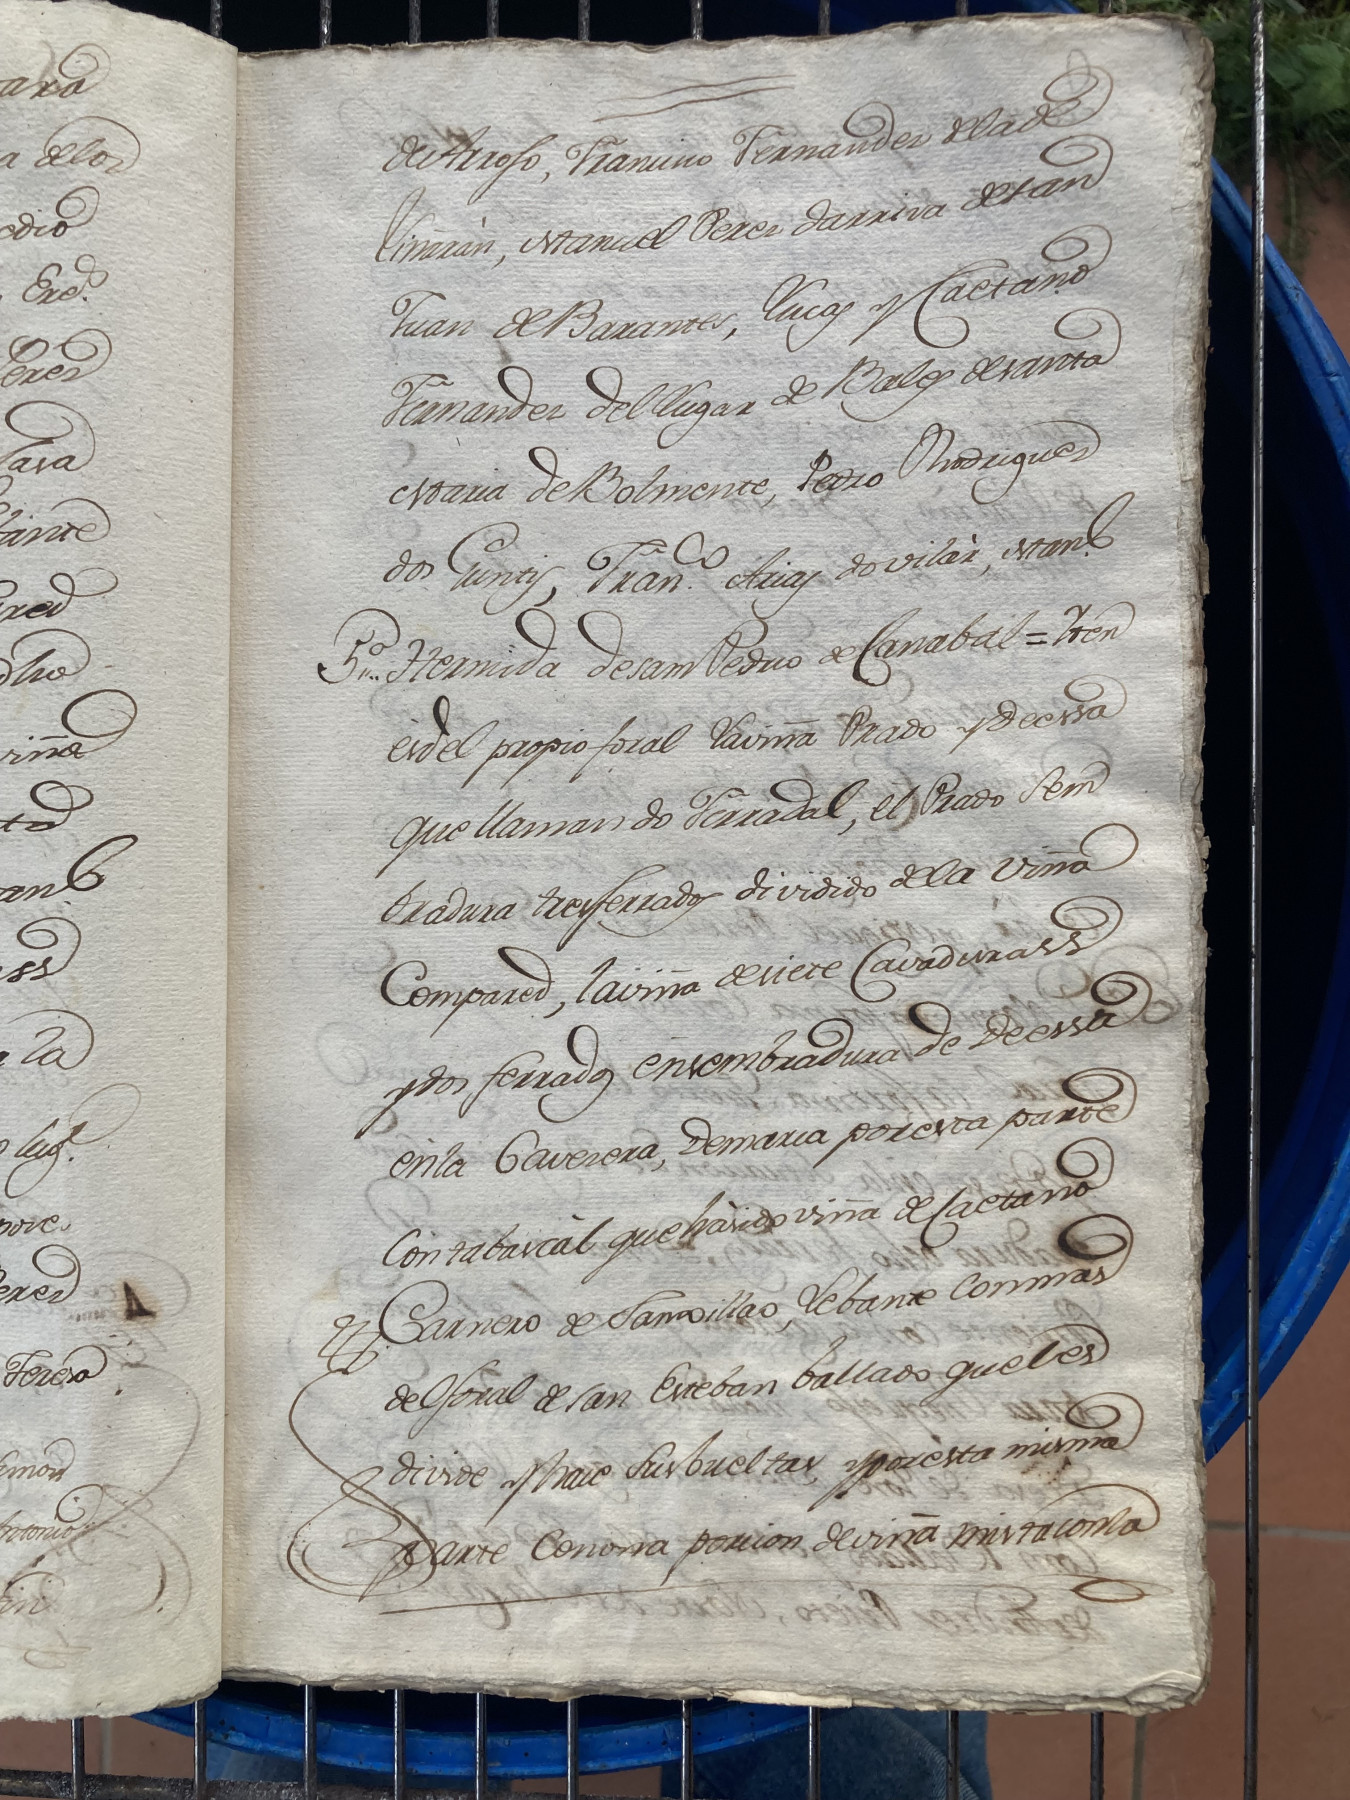 ara
a delos
edio
Ered.
Perez
Lara
tante
ared
viña
anl
la
lug.
Perez
Teresa
Antonio
de Arrojo, Francisco Fernandez de la de
Liñaràn, Manuel Perez darriva de san
Juan de Barantes, Lucas y Caetano
Fernandez del lugar de Balos de santa
Maria de Bolmente, Pedro Rodriguez
dos Cuntis, Fran.co Arias do vilàr, Man.l
5.º Hermida de sam Pedro de Canabal = Iten
es del propio foral la viña Prado y deessa
que llaman do Ferradal, el Prado sem
bradura tres ferrados dividido de la viña
Compared, la viña de siete Cavaduras
y dos ferrados en sembradura de Deessa
en la Caverera, Demarca por esta parte
Con tabascàl que hàsido viña de Caetano
Carnero de Tamoillao, Lebante Con mas
del foral de san Esteban ballado que les
divide y haze sus bueltas, y por èsta misma
Parte Con otra porcion de viña mista con la